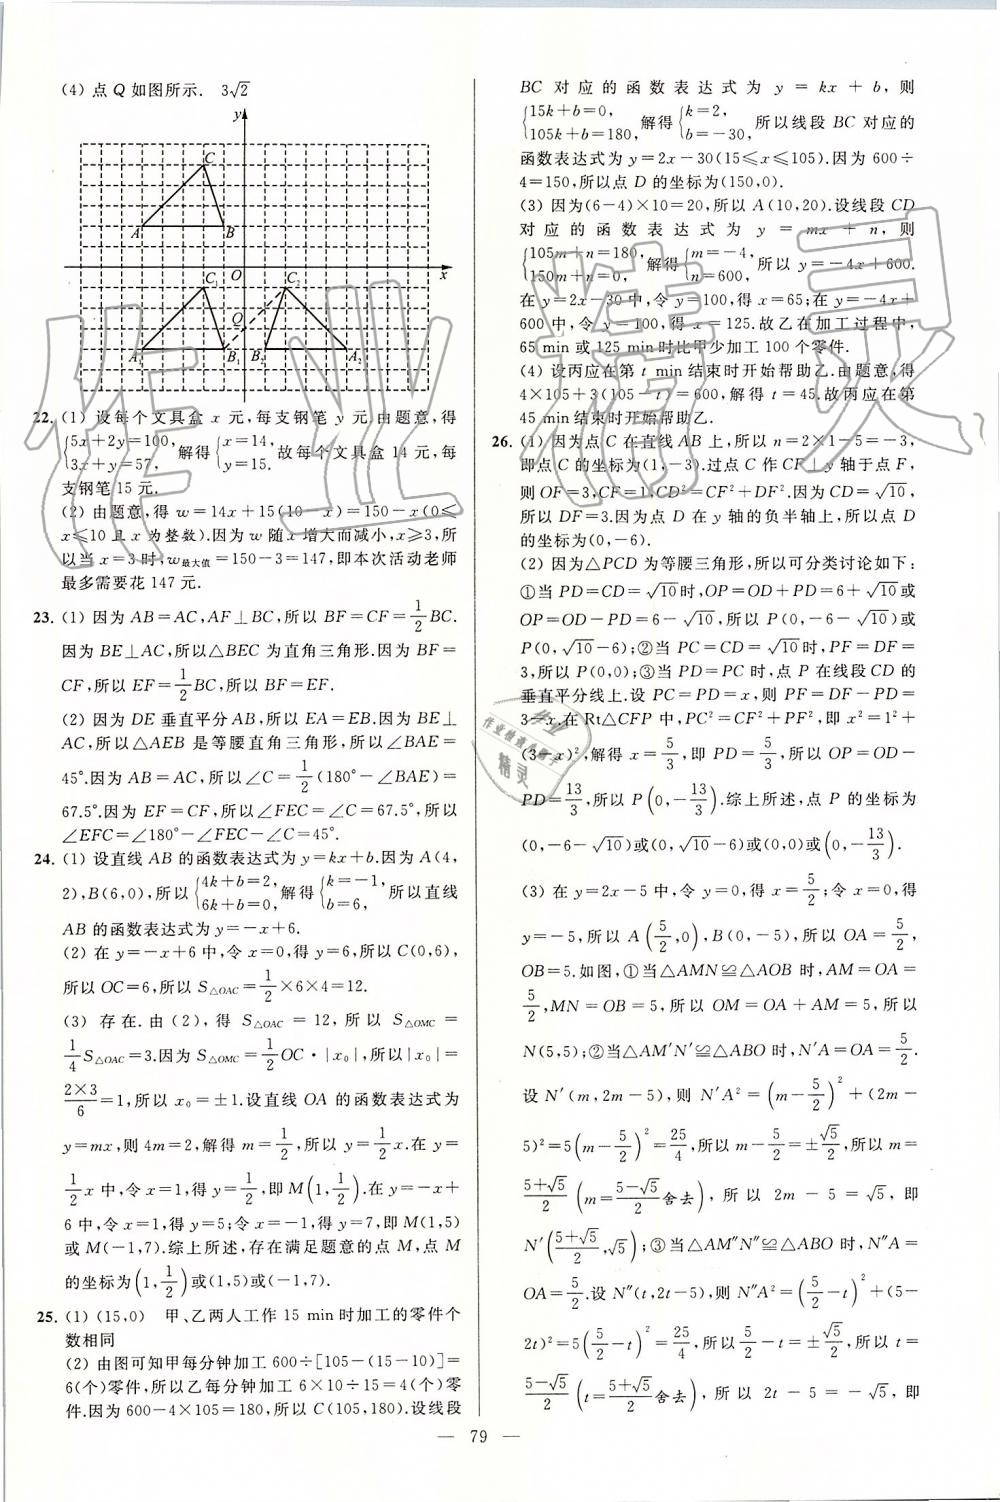 (4) 点 Q 如图所示. 3√2
y
C
A
B
O
x
C₁
C₂
Q
A₁
B₁
B₂
A₂
22. (1) 设每个文具盒 x 元,每支钢笔 y 元.由题意,得
{5x+2y=100, 3x+y=57, 解得{x=14, y=15. 故每个文具盒 14 元,每
支钢笔 15 元.
(2) 由题意,得 w=14x+15(10-x)=150-x(0≤
x≤10 且 x 为整数).因为 w 随 x 增大而减小,x≥3,所
以当 x=3 时,w最大值=150-3=147,即本次活动老师
最多需要花 147 元.
23. (1) 因为 AB=AC,AF⊥BC,所以 BF=CF=1/2BC.
因为 BE⊥AC,所以△BEC 为直角三角形.因为 BF=
CF,所以 EF=1/2BC,所以 BF=EF.
(2) 因为 DE 垂直平分 AB,所以 EA=EB.因为 BE⊥
AC,所以△AEB 是等腰直角三角形,所以∠BAE=
45°.因为 AB=AC,所以∠C=1/2(180°-∠BAE)=
67.5°.因为 EF=CF,所以∠FEC=∠C=67.5°,所以
∠EFC=∠180°-∠FEC-∠C=45°.
24. (1) 设直线 AB 的函数表达式为 y=kx+b.因为 A(4,
2),B(6,0),所以{4k+b=2, 6k+b=0, 解得{k=-1, b=6, 所以直线
AB 的函数表达式为 y=-x+6.
(2) 在 y=-x+6 中,令 x=0,得 y=6,所以 C(0,6),
所以 OC=6,所以 S△OAC=1/2×6×4=12.
(3) 存在.由(2),得 S△OAC=12,所以 S△OMC=
1/4S△OAC=3.因为 S△OMC=1/2OC·|x₀|,所以|x₀|=
2×3/6=1,所以 x₀=±1.设直线 OA 的函数表达式为
y=mx,则 4m=2,解得 m=1/2,所以 y=1/2x.在 y=
1/2x 中,令 x=1,得 y=1/2,即 M(1,1/2).在 y=-x+
6 中,令 x=1,得 y=5;令 x=-1,得 y=7,即 M(1,5)
或 M(-1,7).综上所述,存在满足题意的点 M,点 M
的坐标为(1,1/2)或(1,5)或(-1,7).
25. (1) (15,0) 甲、乙两人工作 15 min 时加工的零件个
数相同
(2) 由图可知甲每分钟加工 600÷[105-(15-10)]=
6(个)零件,所以乙每分钟加工 6×10÷15=4(个)零
件.因为 600-4×105=180,所以 C(105,180).设线段
BC 对应的函数表达式为 y=kx+b,则
{15k+b=0, 105k+b=180, 解得{k=2, b=-30, 所以线段 BC 对应的
函数表达式为 y=2x-30(15≤x≤105).因为 600÷
4=150,所以点 D 的坐标为(150,0).
(3) 因为(6-4)×10=20,所以 A(10,20).设线段 CD
对应的函数表达式为 y=mx+n,则
{105m+n=180, 150m+n=0, 解得{m=-4, n=600, 所以 y=-4x+600.
在 y=2x-30 中,令 y=100,得 x=65;在 y=-4x+
600 中,令 y=100,得 x=125.故乙在加工过程中,
65 min 或 125 min 时比甲少加工 100 个零件.
(4) 设丙应在第 t min 结束时开始帮助乙.由题意,得
4×105+3(105-t)=600,解得 t=45.故丙应在第
45 min 结束时开始帮助乙.
26. (1) 因为点 C 在直线 AB 上,所以 n=2×1-5=-3,
即点 C 的坐标为(1,-3).过点 C 作 CF⊥y 轴于点 F,
则 OF=3,CF=1,CD²=CF²+DF².因为 CD=√10,
所以 DF=3.因为点 D 在 y 轴的负半轴上,所以点 D
的坐标为(0,-6).
(2) 因为△PCD 为等腰三角形,所以可分类讨论如下:
①当 PD=CD=√10时,OP=OD+PD=6+√10或
OP=OD-PD=6-√10,所以 P(0,-6-√10)或
P(0,√10-6);②当 PC=CD=√10时,PF=DF=
3,所以 P(0,0);③当 PD=PC 时,点 P 在线段 CD 的
垂直平分线上.设 PC=PD=x,则 PF=DF-PD=
3-x.在 Rt△CFP 中,PC²=CF²+PF²,即 x²=1²+
(3-x)²,解得 x=5/3,即 PD=5/3,所以 OP=OD-
PD=13/3,所以 P(0,-13/3).综上所述,点 P 的坐标为
(0,-6-√10)或(0,√10-6)或(0,0)或(0,-13/3).
(3) 在 y=2x-5 中,令 y=0,得 x=5/2;令 x=0,得
y=-5,所以 A(5/2,0),B(0,-5),所以 OA=5/2,
OB=5.如图,①当△AMN≌△AOB 时,AM=OA=
5/2,MN=OB=5,所以 OM=OA+AM=5,所以
N(5,5);②当△AM′N′≌△ABO 时,N′A=OA=5/2.
设 N′(m,2m-5),则 N′A²=(m-5/2)²+(2m-
5)²=5(m-5/2)²=25/4,所以 m-5/2=±√5/2,所以 m=
5+√5/2(m=5-√5/2舍去),所以 2m-5=√5,即
N′(5+√5/2,√5);③当△AM″N″≌△ABO 时,N″A=
OA=5/2.设 N″(t,2t-5),则 N″A²=(5/2-t)²+(5-
2t)²=5(5/2-t)²=25/4,所以 5/2-t=±√5/2,所以 t=
5-√5/2(t=5+√5/2舍去),所以 2t-5=-√5,即
— 79 —
作业精灵
作业检查小助手
精灵